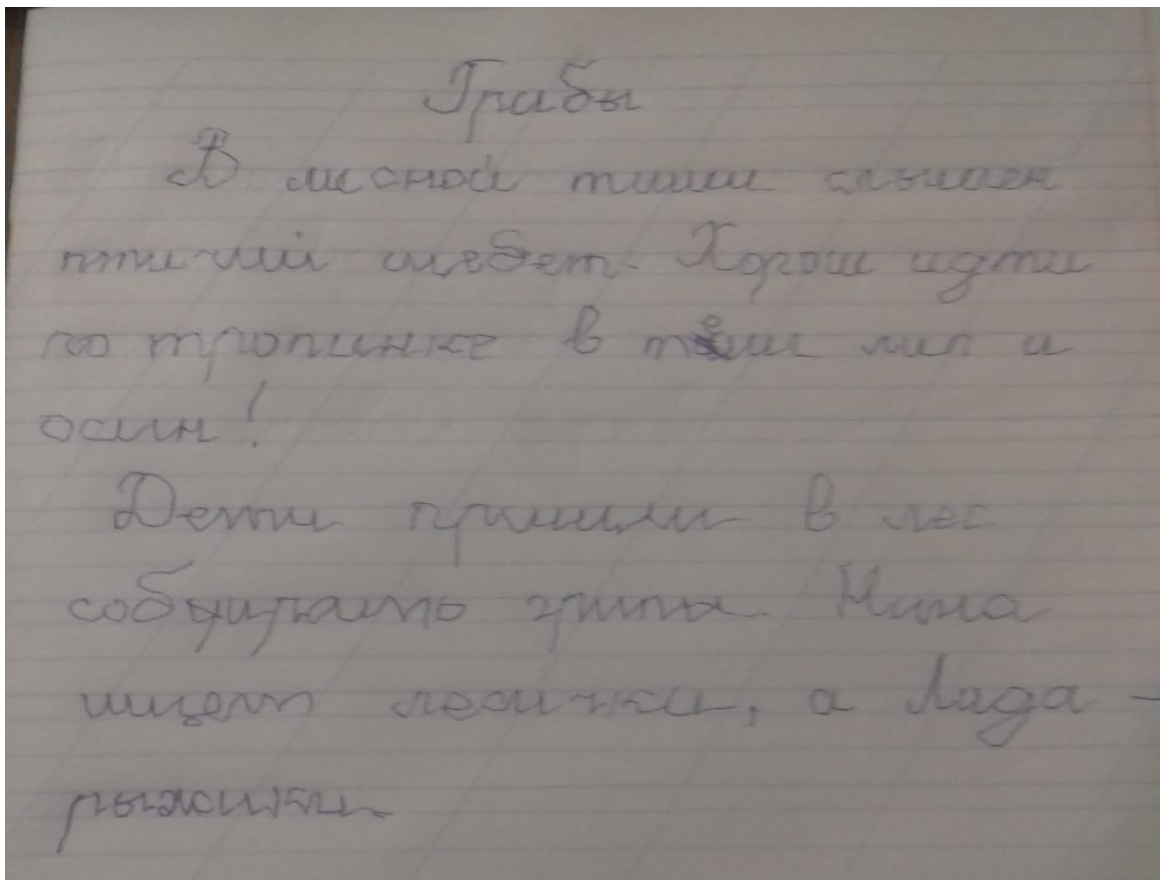 Грабы
В лесной тиши слышен
птичий щебет. Хорош идти
по тропинке в тени лип и
осин!
Дети пришли в лес
собирать грипы. Нина
ищет лесички, а Лада -
рыжики